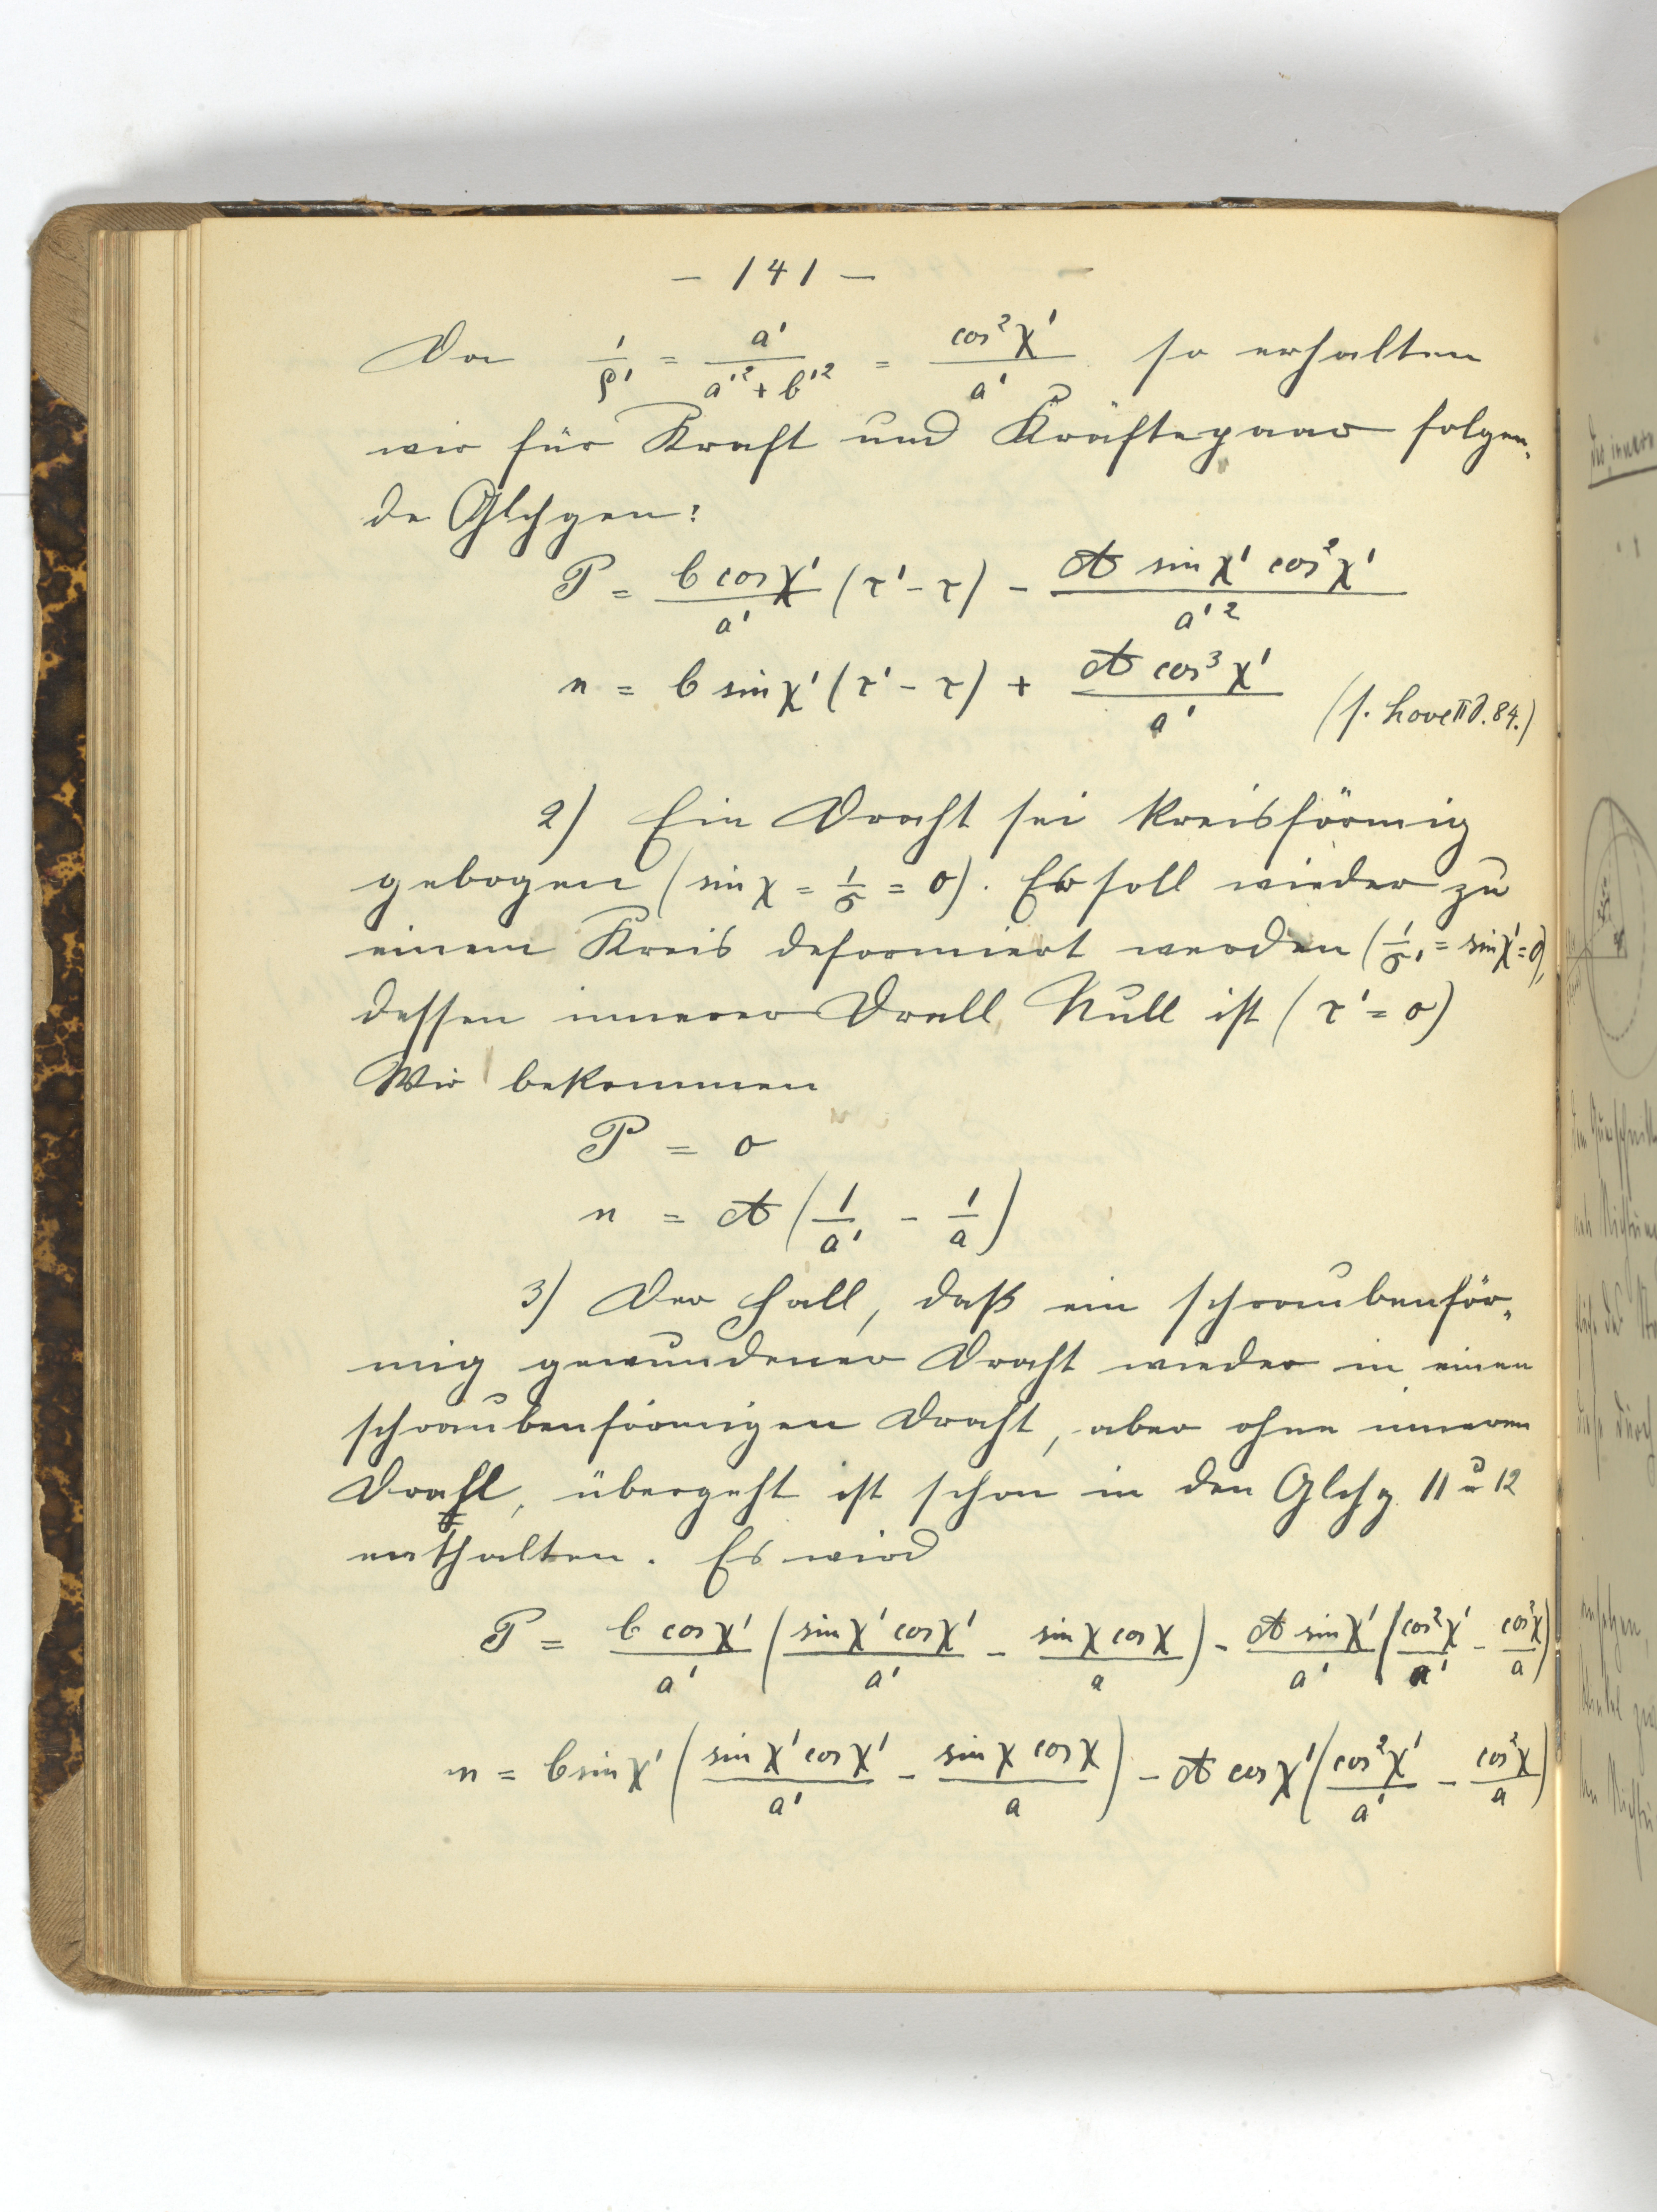 — 141 —
Da 1/ρ' = a'/(a'² + b'²) = cos²χ'/a' so erhalten
wir für Kraft und Kräftepaar folgen-
de Glchgen:
P = b cosχ'/a' (τ' - τ) - A sinχ' cos²χ'/a'²
n = b sinχ' (τ' - τ) + A cos³χ'/a' (s. Love II S. 84.)
2) Ein Draht sei kreisförmig
gebogen (sin χ = 1/σ = 0). Er soll wieder zu
einem Kreis deformiert werden (1/σ' = sinχ' = 0),
dessen innerer Drall Null ist (τ' = 0)
Wir bekommen
P = 0
n = A (1/a' - 1/a)
3) Der Fall, daß ein schraubenför-
mig gewundener Draht wieder in einen
schraubenförmigen Draht, aber ohne inneren
Drall, übergeht ist schon in den Glchg. 11 u 12
enthalten. Es wird
P = b cosχ'/a' (sinχ' cosχ'/a' - sinχ cosχ/a) - A sinχ'/a' (cos²χ'/a' - cos²χ/a)
n = b sinχ' (sinχ' cosχ'/a' - sinχ cosχ/a) - A cosχ' (cos²χ'/a' - cos²χ/a)